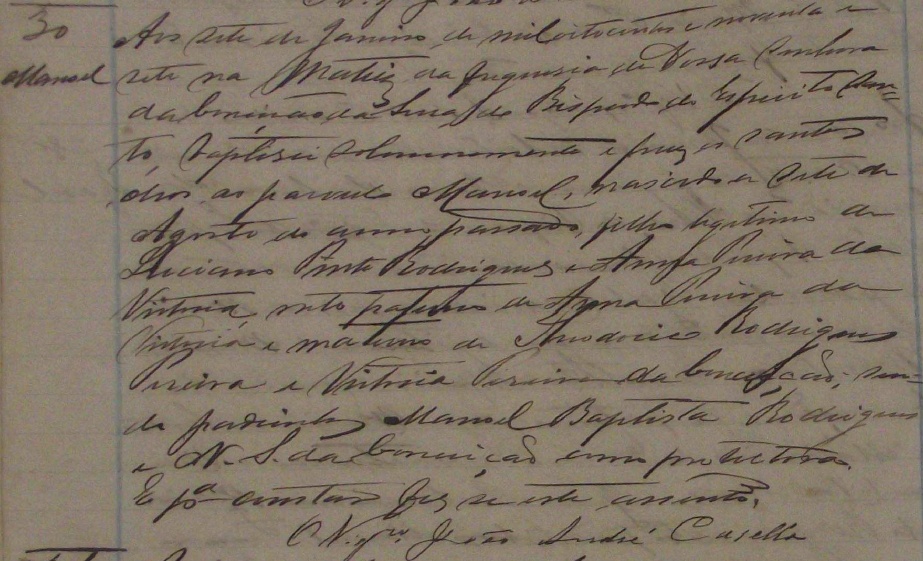 30
Manoel
Aos sete de Janeiro de mil oitocentos e noventa e
sete na Matriz da freguesia de Nossa Senhora
da Conceição da Serra, do Bispado do Espirito San-
to, baptisei solemnemente e puz os santos
oleos ao parvulo Manoel, nascido a sete de
Agosto do anno passado, filho legitimo de
Luciano Pinto Rodrigues e Anna Pereira da
Victoria, neto paterno de Anna Pereira da
Victoria e materno de Rodrigues
Pereira e Victoria Pereira da Conceição; sen-
do padrinhos Manoel Baptista Rodrigues
e N. S. da Conceição como protectora.
E pª constar fez se este assento.
O Vigrº João André Casella